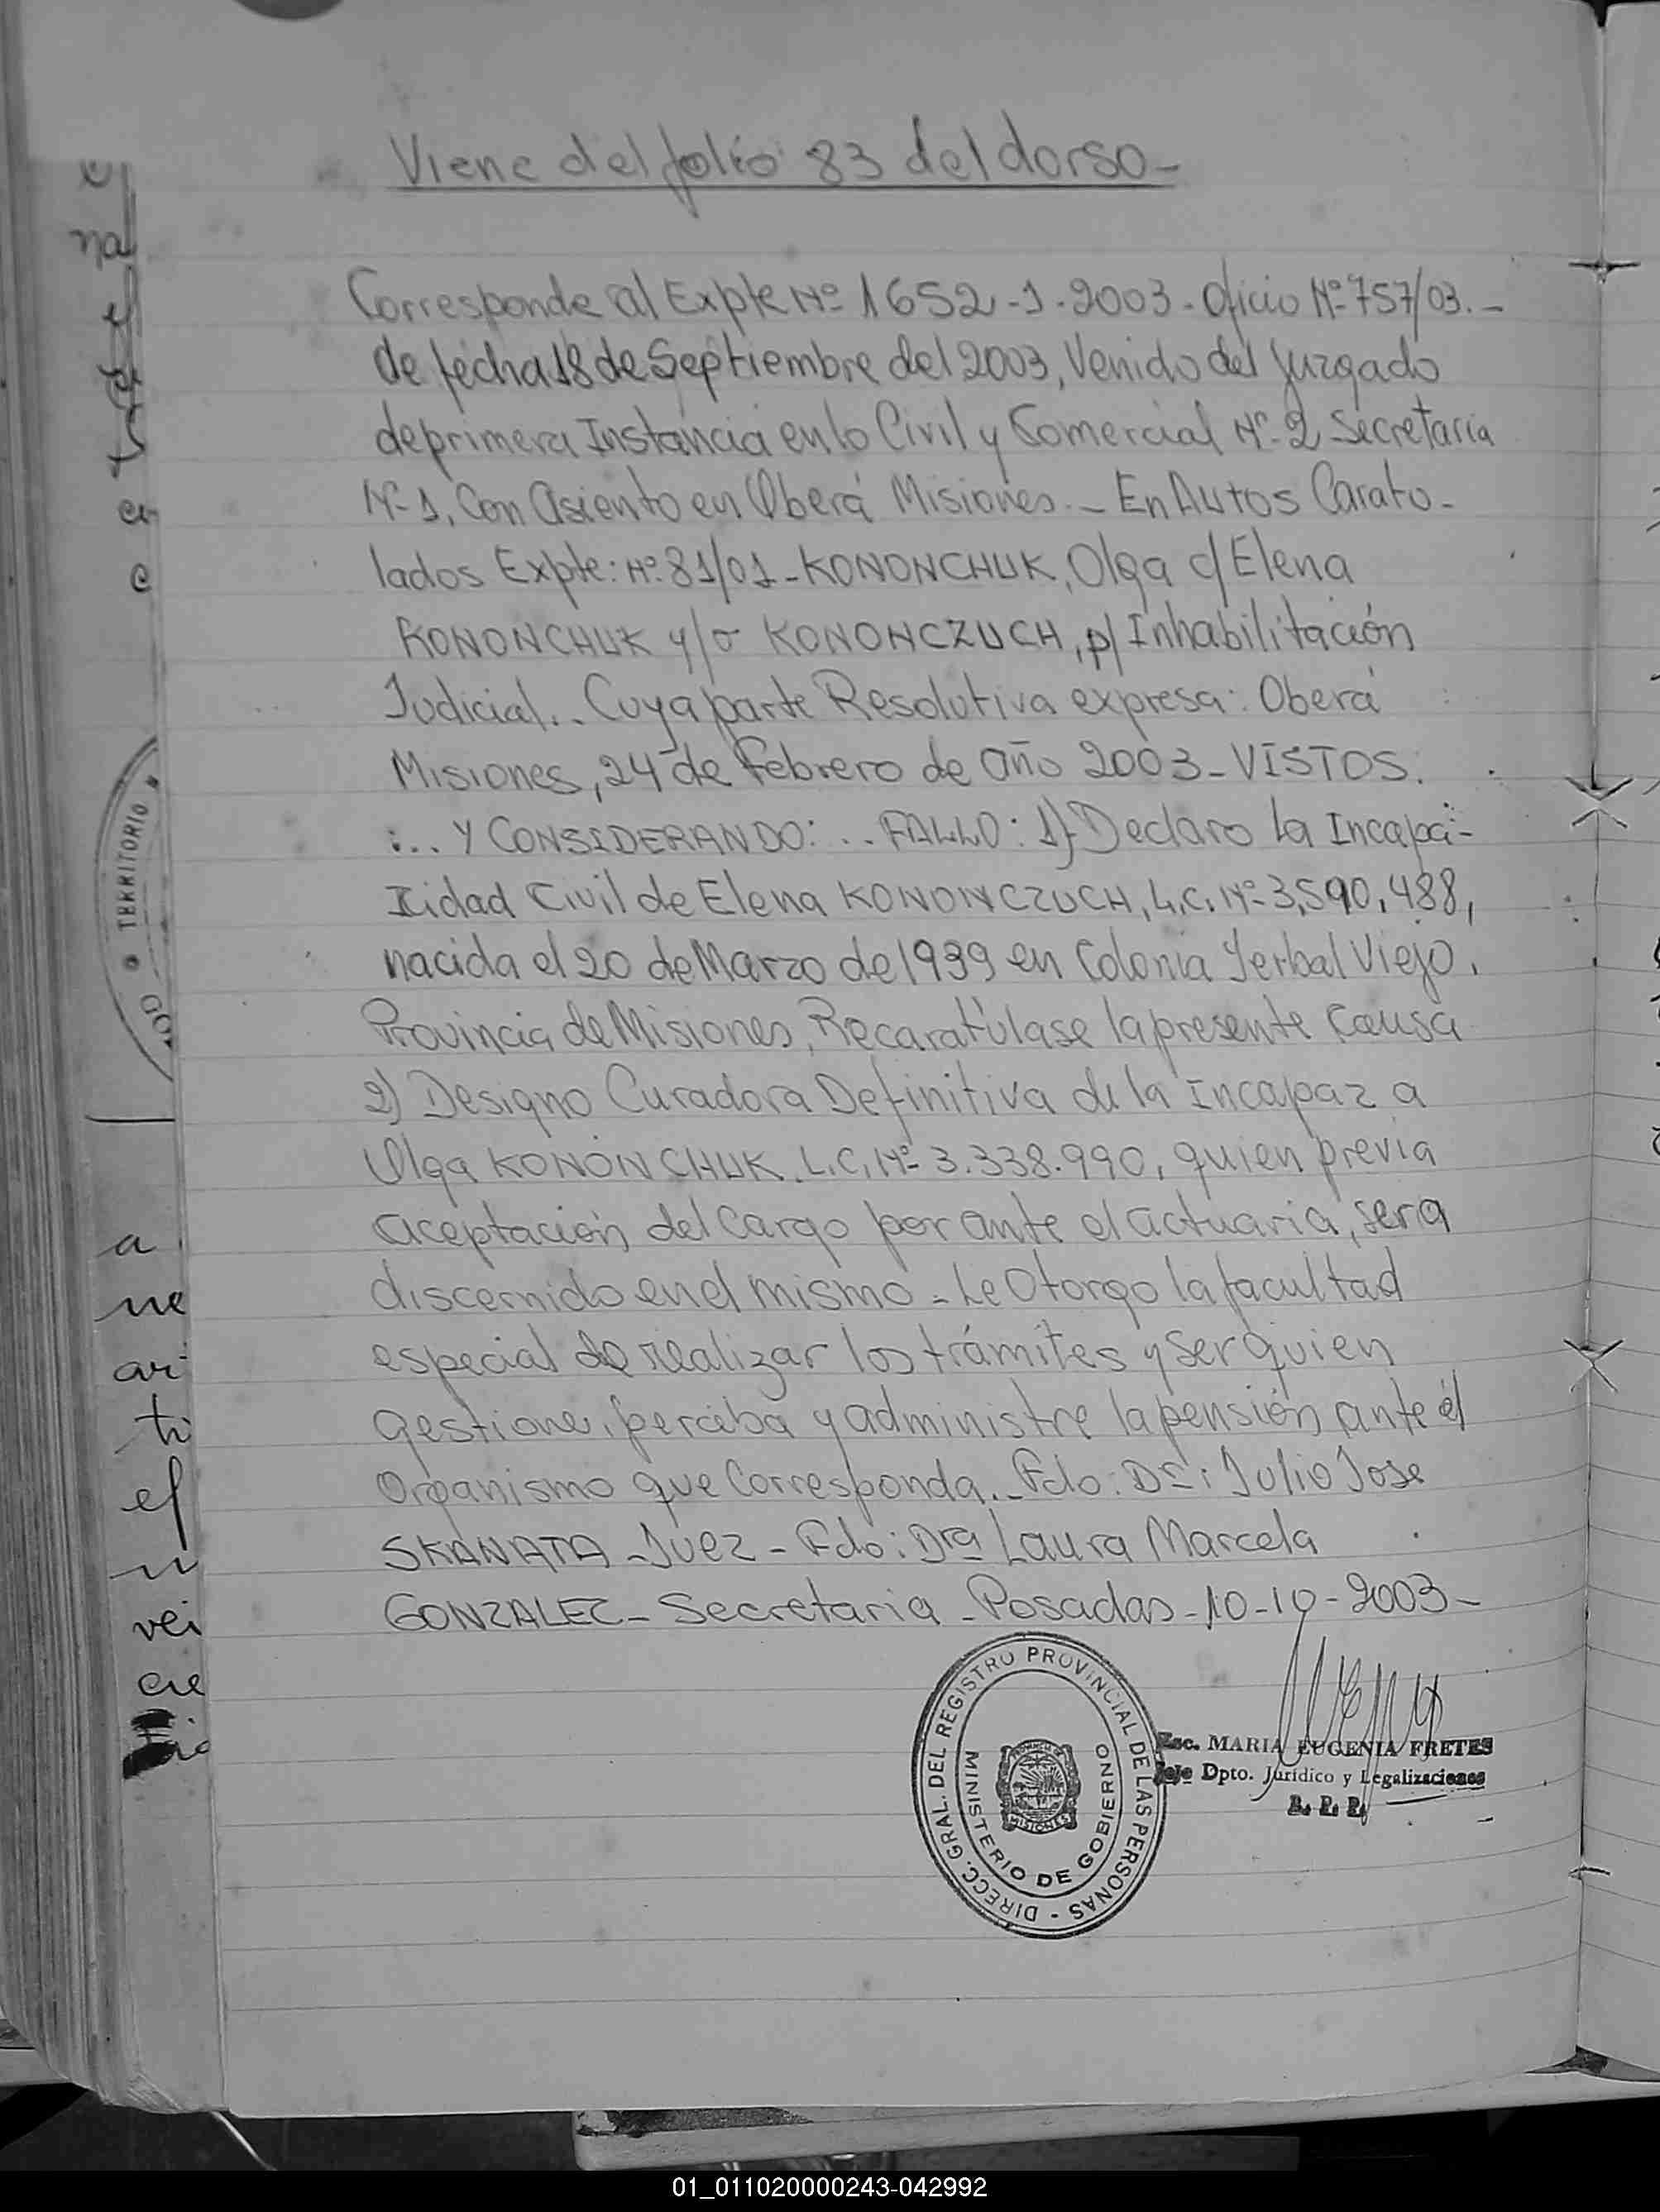 Viene del folio 83 del dorso-
Corresponde al Expte Nº 1652-1-2003- Oficio Nº 757/03.-
de fecha 18 de Septiembre del 2003, Venido del Juzgado
de primera Instancia en lo Civil y Comercial Nº 2 Secretaría
Nº 1, Con asiento en Oberá Misiones.- En Autos Caratu-
lados Expte: Nº 81/01-KONONCHUK, Olga c/ Elena
KONONCHUK y/o KONONCZUCH, p/ Inhabilitación
Judicial.. Cuya parte Resolutiva expresa: Oberá
Misiones, 24 de Febrero de año 2003-VISTOS.
:... Y CONSIDERANDO:... FALLO: 1) Declaro la Incapa-
cidad Civil de Elena KONONCZUCH, L.C. Nº 3,590.488,
nacida el 20 de Marzo de 1939 en Colonia Yerbal Viejo,
Provincia de Misiones, Recaratúlase la presente Causa
2) Designo Curadora Definitiva de la Incapaz a
Olga KONONCHUK. L.C. Nº 3.338.990, quien previa
aceptación del Cargo por ante el actuaria, sera
discernido en el mismo - Le Otorgo la facultad
especial de realizar los trámites y ser quien
gestione, perciba y administre la pensión ante él
Organismo que Corresponda.- Fdo: Dr: Julio Jose
SKANATA -Juez - Fdo: Dra Laura Marcela
GONZALEZ - Secretaria - Posadas -10-10-2003-
DIRECC. GRAL. DEL REGISTRO PROVINCIAL DE LAS PERSONAS -
MINISTERIO DE GOBIERNO
MISIONES
Esc. MARIA EUGENIA FRETES
Jefe Dpto. Jurídico y Legalizaciones
R. P. P.
TERRITORIO
GO
a
ne
ar
ti
el
vei
cre
01_011020000243-042992